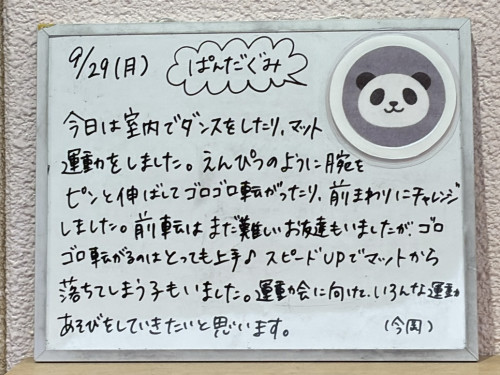 9/29(月) ぱんだぐみ
今日は室内でダンスをしたり、マット
運動をしました。えんぴつのように腕を
ピンと伸ばしてゴロゴロ転がったり、前まわりにチャレンジ
しました。前転はまだ難しいお友達もいましたが、ゴロ
ゴロ転がるのはとっても上手♪スピードUPでマットから
落ちてしまう子もいました。運動会に向けて、いろんな運動
あそびをしていきたいと思います。 (今岡)